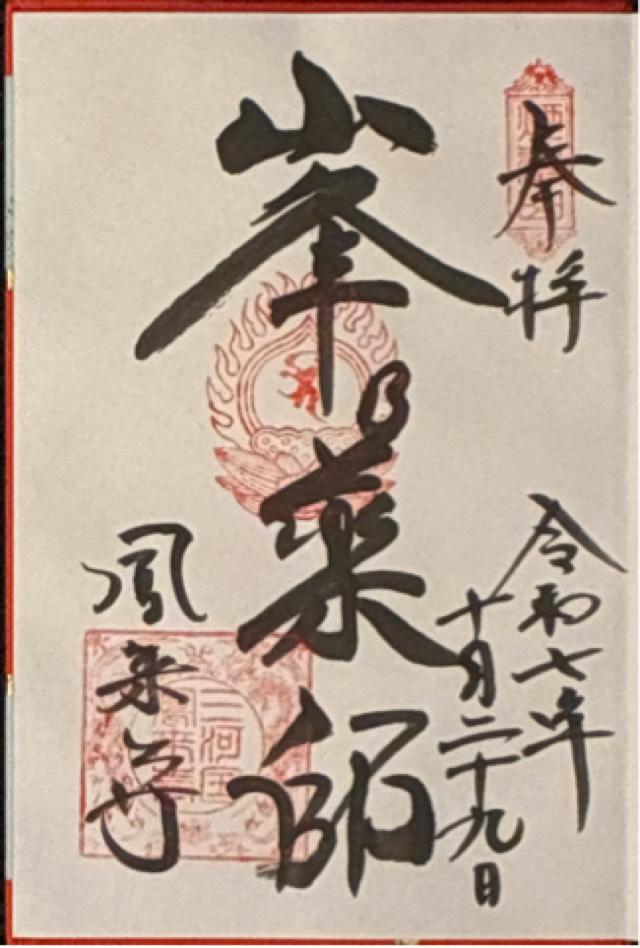 奉拝
令和七年
十月二十九日
峯の薬師
鳳来寺
三河国
鳳来寺